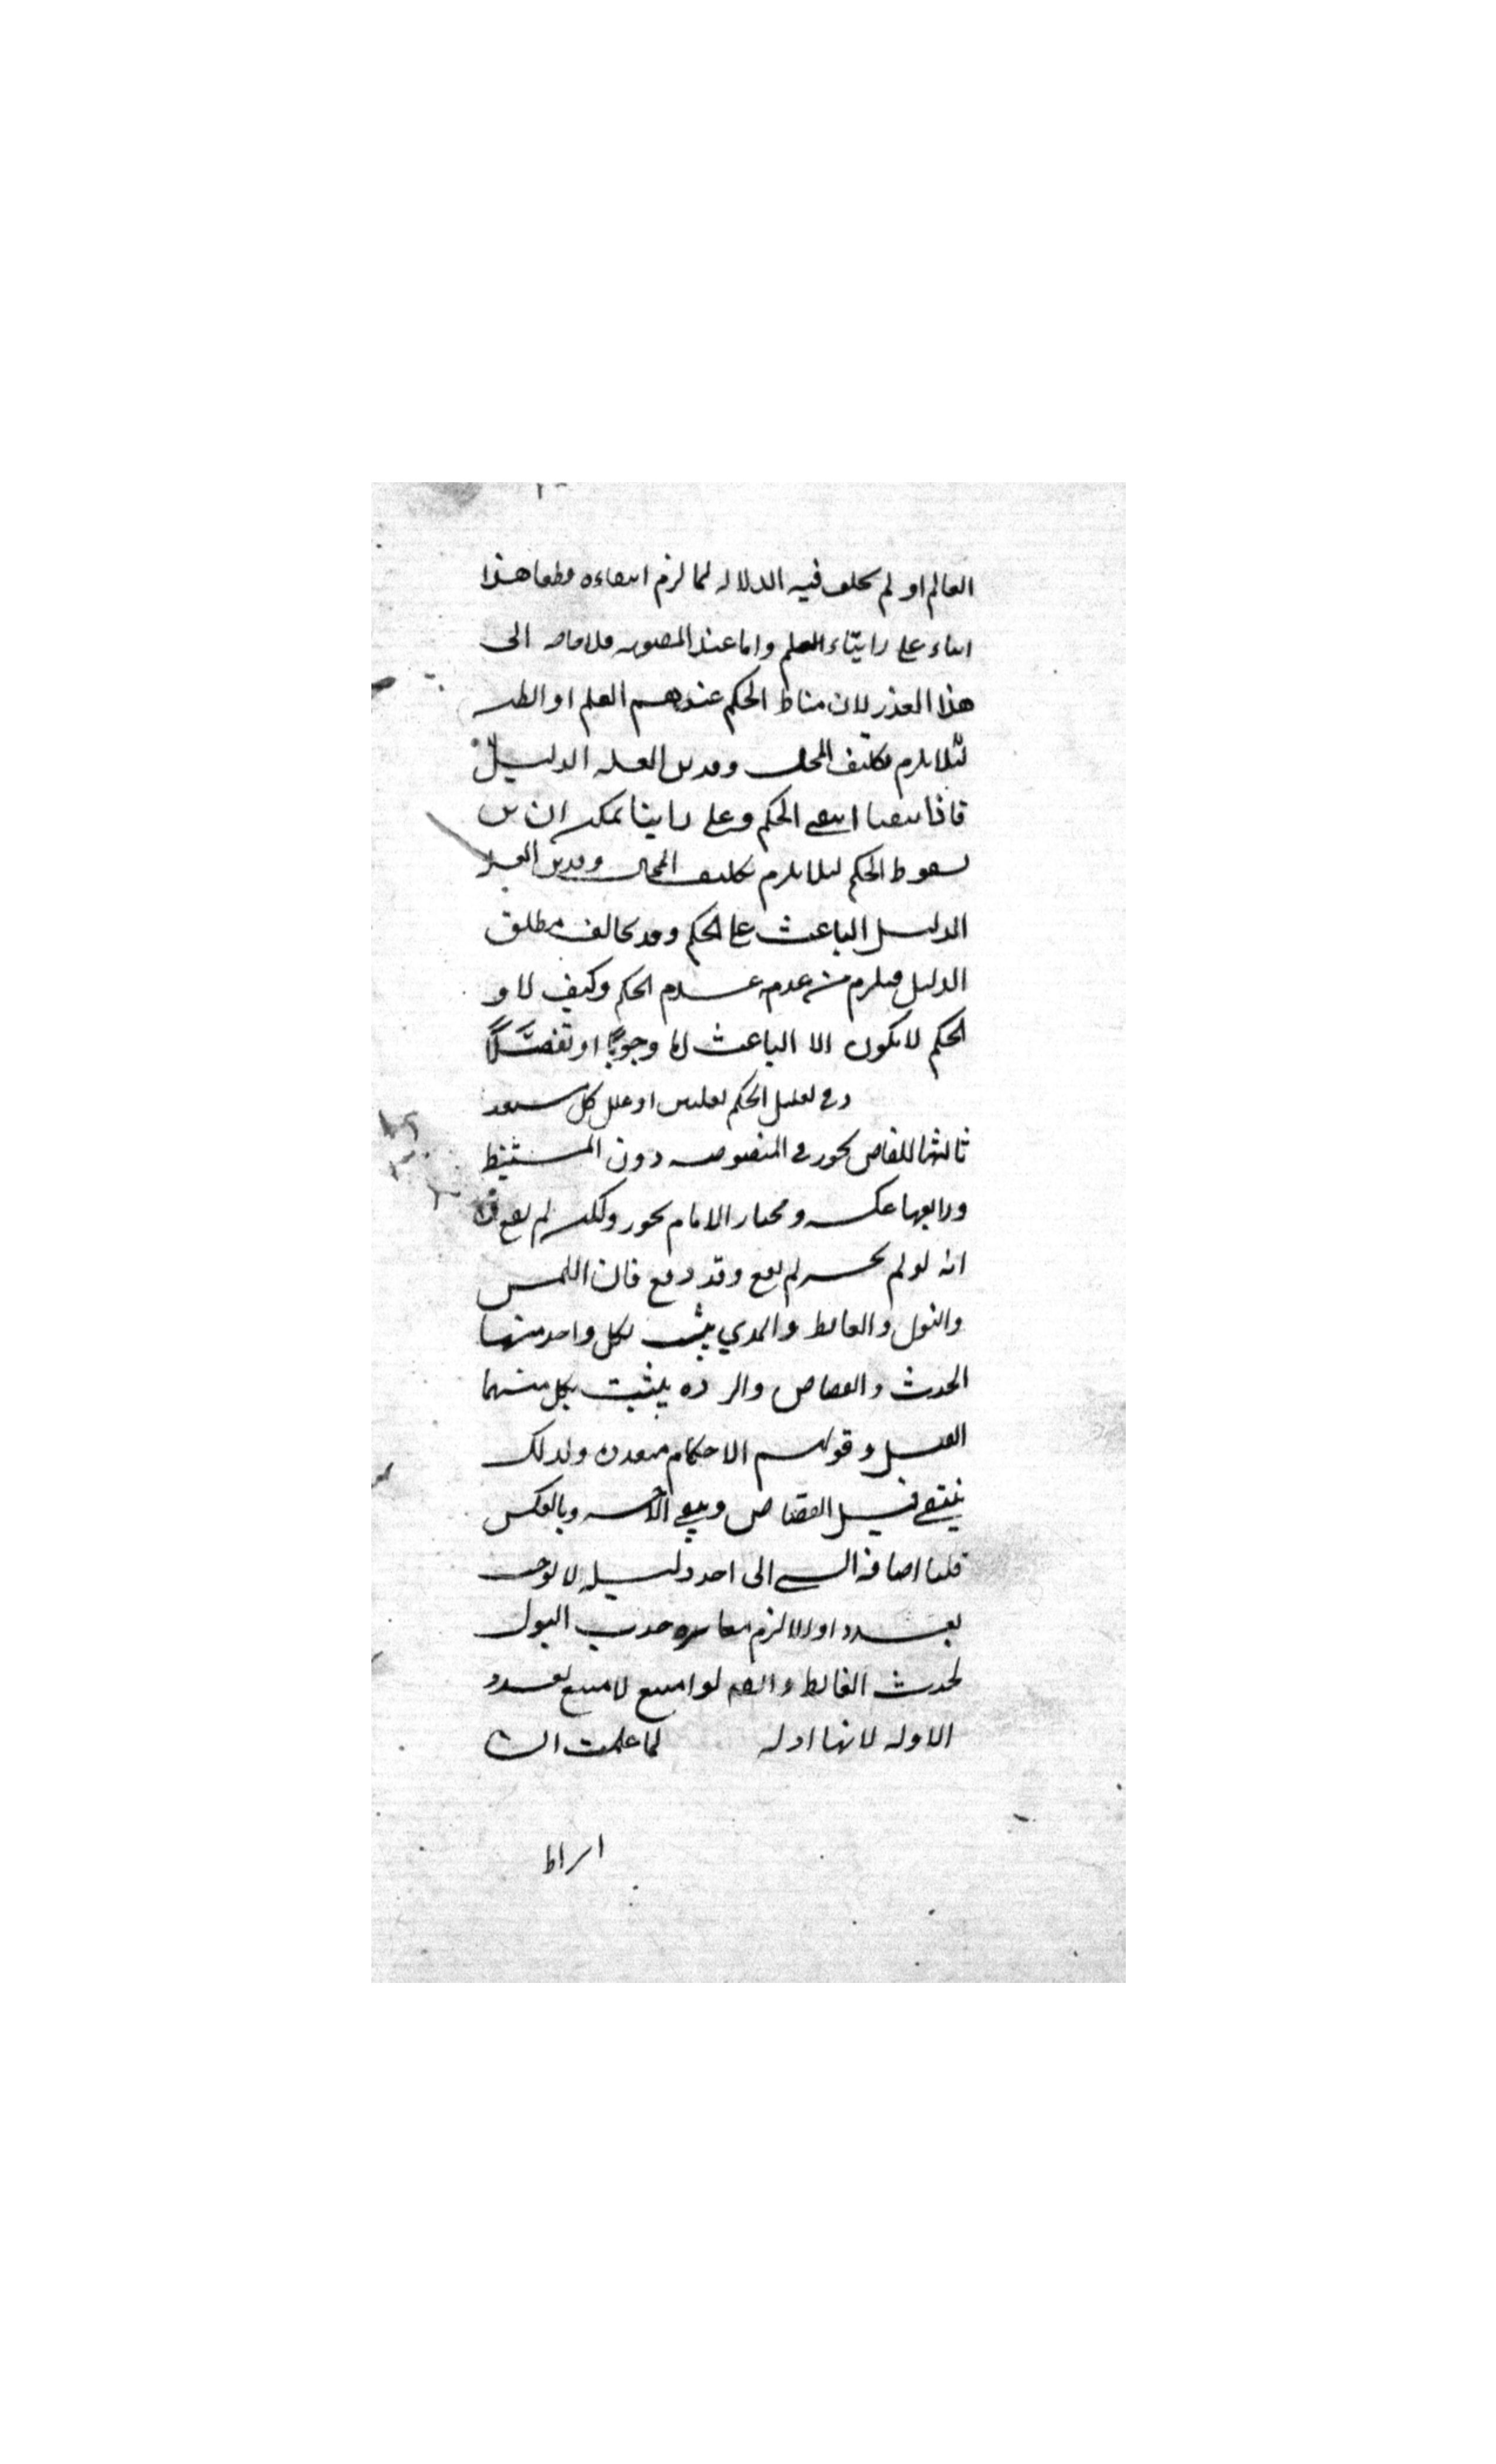 العالم او لم يخلق فيه الدلاله لما لزم انتفاءه قطعا هذا
بناء على راينا واما عند المصوبه فلا حاجه الى
هذا العذر لان مناط الحكم عندهم العلم او الظن
لئلا يلزم تكليف المحال الدليل
فاذا انتفيا انتفى الحكم وعلى راينا يمكن ان
سقوط الحكم لئلا يلزم تكليف المحال
الدليل الباعث على الحكم وقد يخالف مطلق
الدليل فيلزم من عدمه عدم الحكم وكيف لا و
الحكم لا يكون الا الباعث اما وجوبًا او تفضلًا
وفي تعليل الحكم بعلتين او علل كل مستقل
ثالثها للقاضي يجوز في المنصوصه دون المستنبطه
ورابعها عكسه ومختار الامام يجوز ولكن لم يقع لنا
انه لو لم يجز لم يقع وقد وقع فان اللمس
والبول والغائط والمذي يثبت بكل واحد منها
الحدث والقصاص والرده يثبت بكل منهما
القتل وقولهم الاحكام متعدده ولذلك
ينتفي قتل القصاص ويبقى الآخر وبالعكس
قلنا اضافه الشي الى احد دليليه لا توجب
تعددا والا لزم مغايره حدث البول
لحدث الغائط وايضا لو امتنع لامتنع تعدد
الادله لانها ادله لما علمت